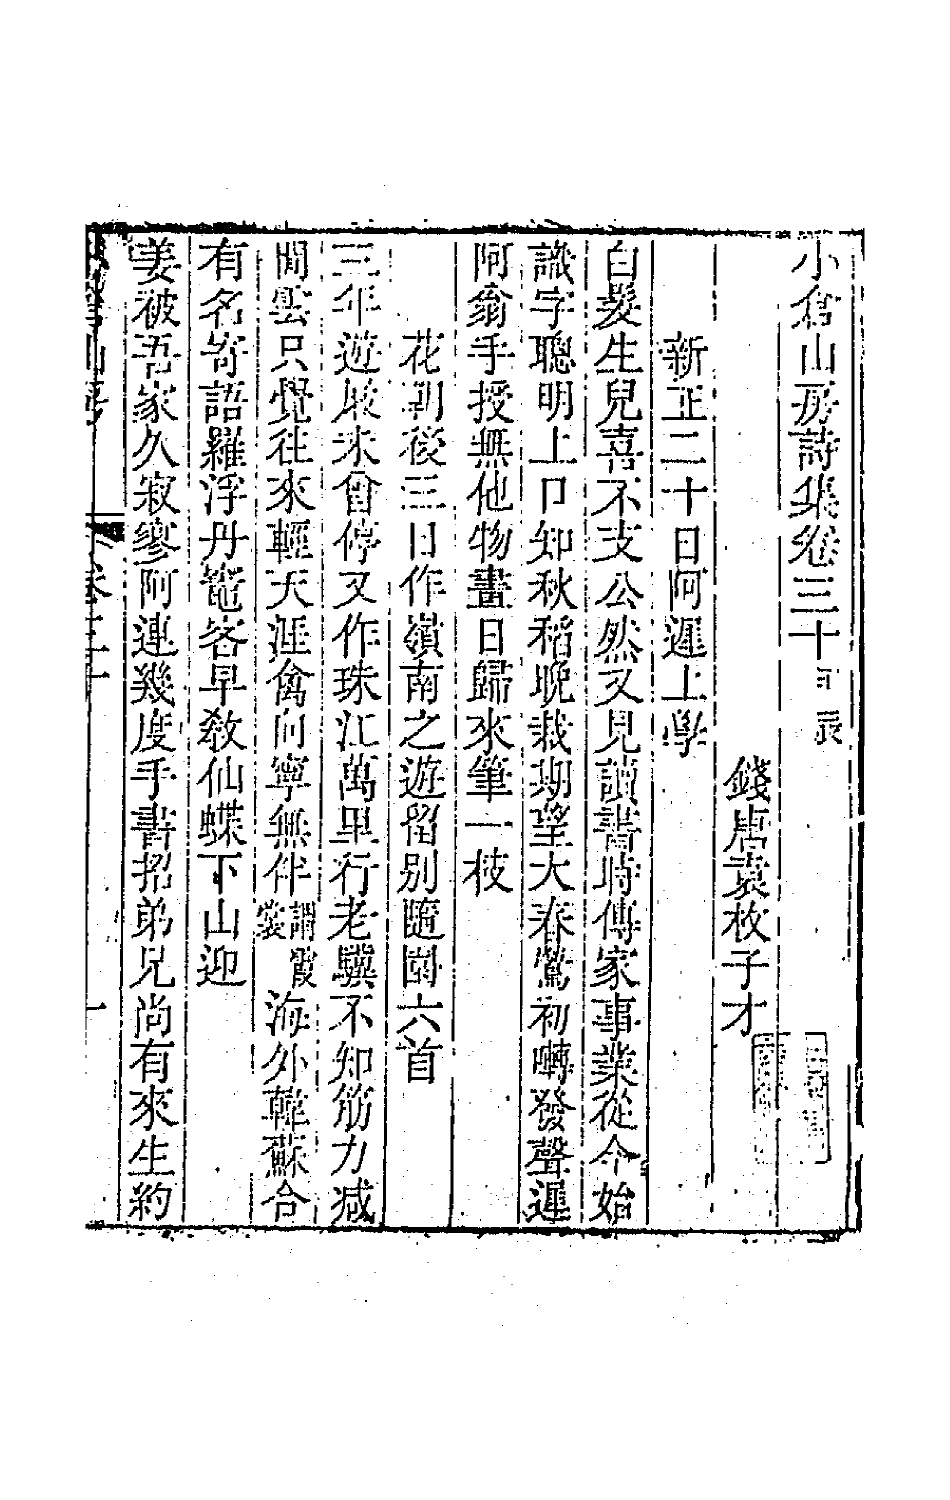 小倉山房詩集卷三十 甲辰
錢唐袁枚子才
新正二十日阿遲上學
白髮生兒喜不支公然又見讀書時傳家事業從今始
識字聰明上口知秋稻晚栽期望大春鶯初囀發聲遲
阿翁手授無他物畫日歸來筆一枝
花朝後三日作嶺南之遊留別隨園六首
三年遊屐未曾停又作珠江萬里行老驥不知筋力減
閒雲只覺往來輕天涯禽向寧無伴謂霞裳海外韓蘇合
有名寄語羅浮丹竈客早教仙蝶下山迎
姜被吾家久寂寥阿連幾度手書招弟兄尚有來生約
小倉山房 卷三十 一